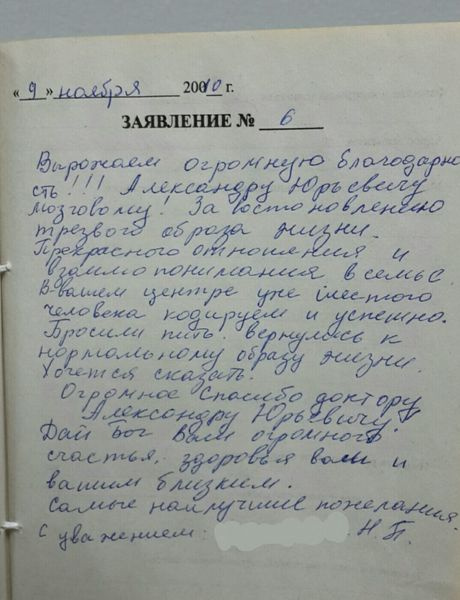 « 9 » ноября 20010 г.
ЗАЯВЛЕНИЕ № 6
Вырожаем огромную благодарно
сть!!! Александру Юрьевичу
Мозговому! За востоновлению
трезвого образа жизни.
Прекрасного отношения и
взаимопонимания в семье.
В вашем центре уже шестого
человека кодируем и успешно.
Бросили пить. Вернулись к
нормальному образу жизни.
Хочется сказать.
Огромное спасибо доктору
Александру Юрьевичу!
Дай Бог Вам огромного
счастья, здоровья вам и
вашим близким.
Самые наилучшие пожелания.
С уважением: Н.П.